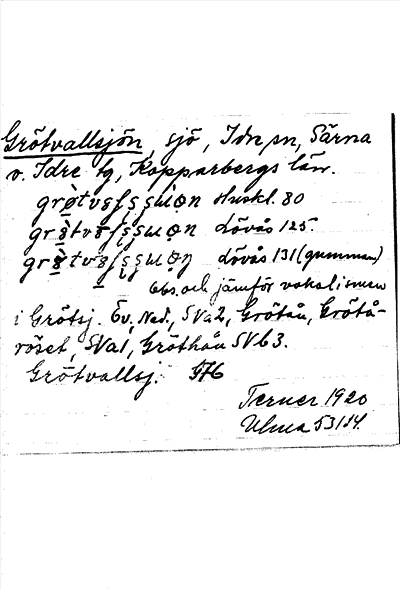 Grötvallsjön, sjö, Idre sn, Särna
v. Idre tg, Kopparbergs län.
Huskl. 80
Lövås 125.
Lövås 131 (gumman)
Obs. och jämför vokalismen
i Grötsj. Öv., Ned., SVa2, Grötån, Grötå-
röset, SVa1, Gröthån SVb3.
Grötvallsj. 576
Terner 1920
Ulma 53/14.